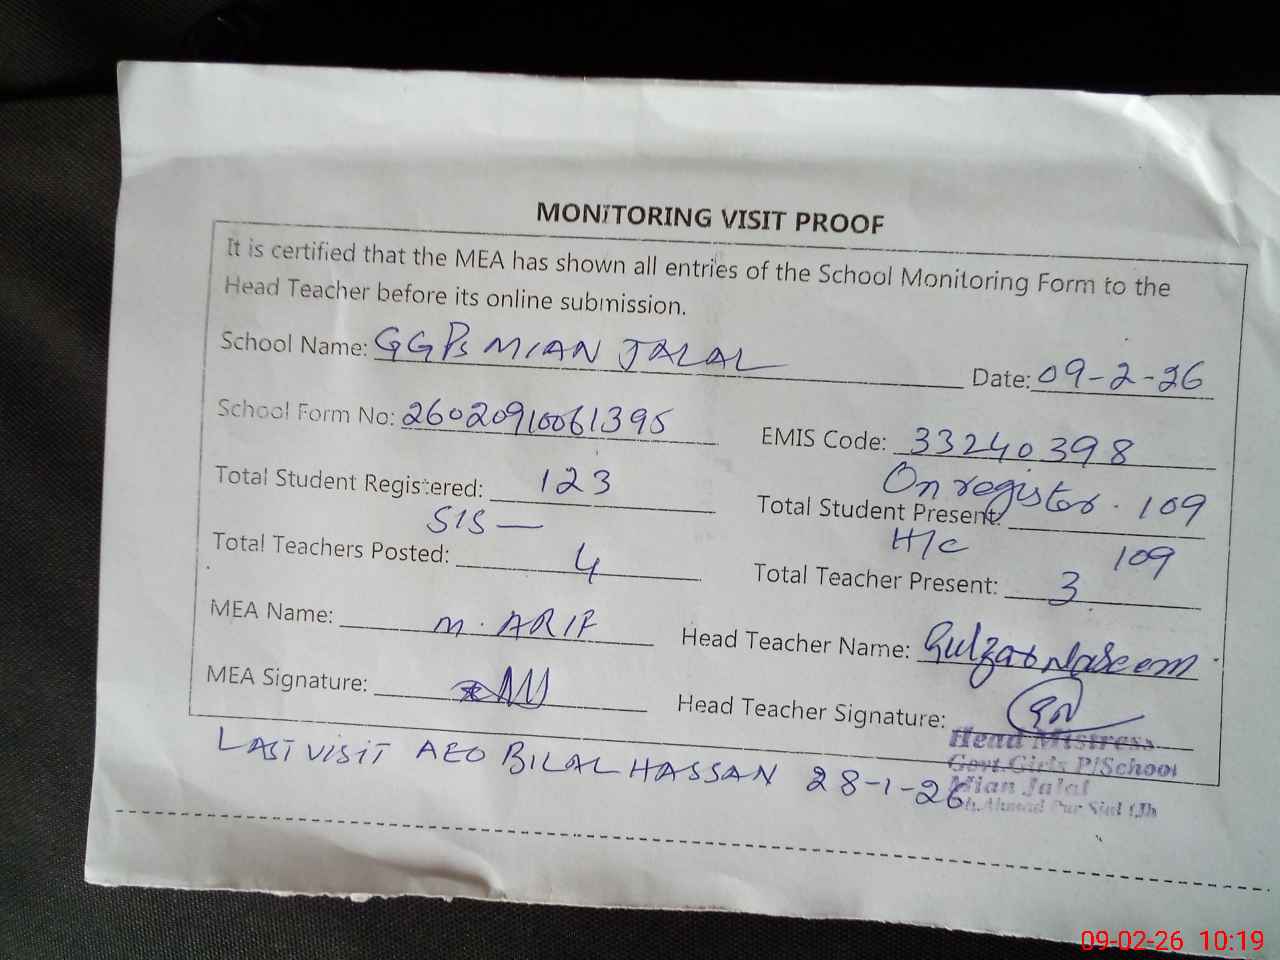 MONITORING VISIT PROOF
It is certified that the MEA has shown all entries of the School Monitoring Form to the
Head Teacher before its online submission.
School Name: GGPS MIAN JALAL Date: 09-2-26
School Form No: 26020910061395 EMIS Code: 33240398
Total Student Registered: 123 Total Student Present: On register. 109
SIS — H/c 109
Total Teachers Posted: 4 Total Teacher Present: 3
MEA Name: M. ARIF Head Teacher Name: Gulzar Naseem
MEA Signature: Head Teacher Signature: GN
LAST VISIT AEO BILAL HASSAN 28-1-26
Head Mistress
Govt. Girls P/School
Mian Jalal
Ahmad Pur Sial
09-02-26 10:19